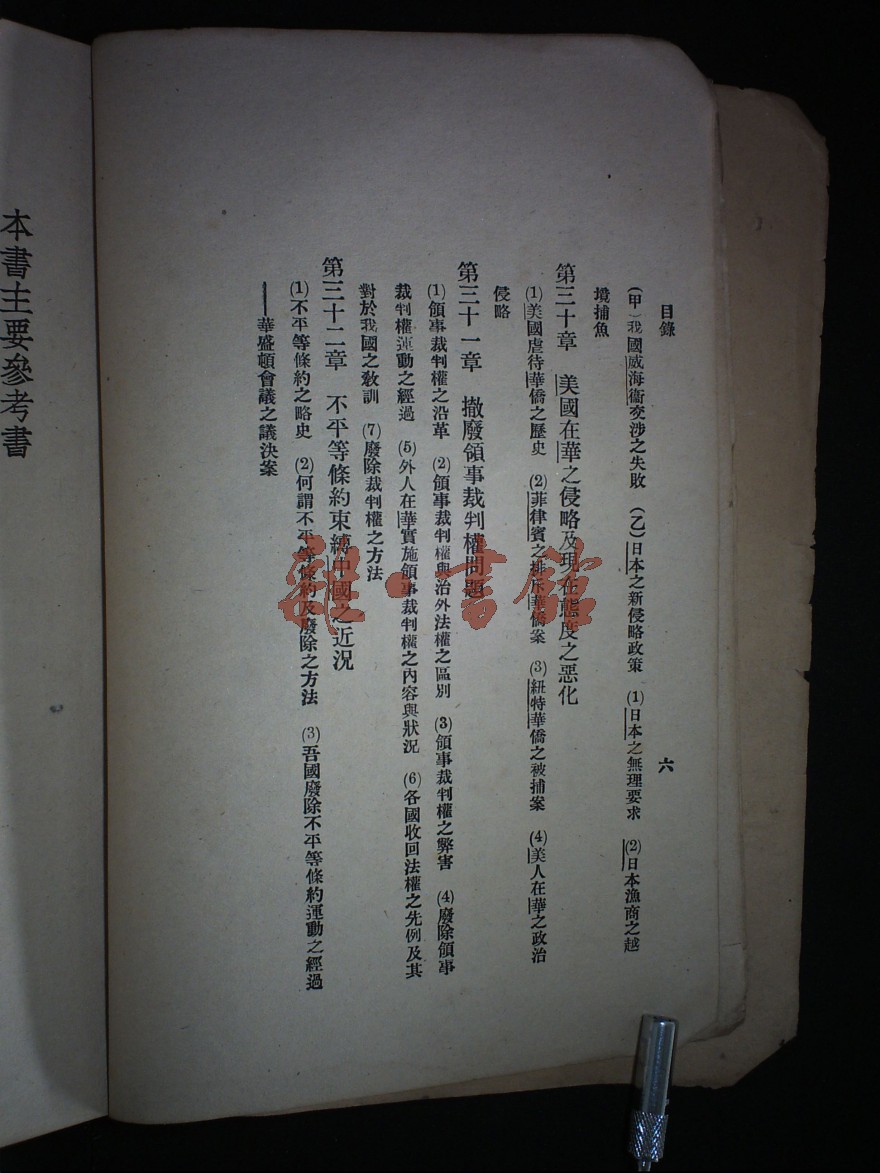 目錄
六
(甲)我國威海衞交涉之失敗 (乙)日本之新侵略政策 (1)日本之無理要求 (2)日本漁商之越
境捕魚
第三十章 美國在華之侵略及現在態度之惡化
(1)美國虐待華僑之歷史 (2)菲律賓之排斥華僑案 (3)紐特華僑之被捕案 (4)美人在華之政治
侵略
第三十一章 撤廢領事裁判權問題
(1)領事裁判權之沿革 (2)領事裁判權與治外法權之區別 (3)領事裁判權之弊害 (4)廢除領事
裁判權運動之經過 (5)外人在華實施領事裁判權之內容與狀況 (6)各國收回法權之先例及其
對於我國之敎訓 (7)廢除裁判權之方法
第三十二章 不平等條約束縛中國之近況
(1)不平等條約之略史 (2)何謂不平等條約及廢除之方法 (3)吾國廢除不平等條約運動之經過
——華盛頓會議之議決案
本書主要參考書
書館